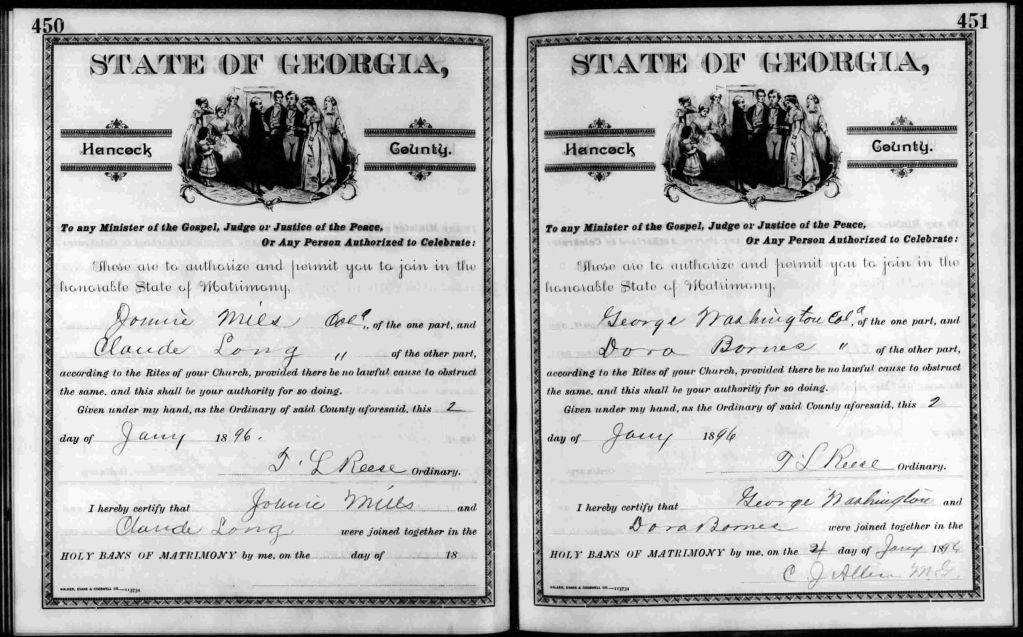 450
STATE OF GEORGIA,
Hancock County.
To any Minister of the Gospel, Judge or Justice of the Peace,
Or Any Person Authorized to Celebrate:
These are to authorize and permit you to join in the
honorable State of Matrimony,
Jonnie Mils Col'd, of the one part, and
Claude Long " of the other part,
according to the Rites of your Church, provided there be no lawful cause to obstruct
the same, and this shall be your authority for so doing.
Given under my hand, as the Ordinary of said County aforesaid, this 2
day of Jany 1896.
T. L Reese Ordinary.
I hereby certify that Jonnie Mills and
Claude Long were joined together in the
HOLY BANS OF MATRIMONY by me, on the day of 18
WALKER, EVANS & COGSWELL CO.—113734
451
STATE OF GEORGIA,
Hancock County.
To any Minister of the Gospel, Judge or Justice of the Peace,
Or Any Person Authorized to Celebrate:
These are to authorize and permit you to join in the
honorable State of Matrimony,
George Washington Col'd, of the one part, and
Dora Bornes " of the other part,
according to the Rites of your Church, provided there be no lawful cause to obstruct
the same, and this shall be your authority for so doing.
Given under my hand, as the Ordinary of said County aforesaid, this 2
day of Jany 1896
T L Reese Ordinary.
I hereby certify that George Washington and
Dora Bornes were joined together in the
HOLY BANS OF MATRIMONY by me, on the day of Jany 1896
C J Allen M.G.
WALKER, EVANS & COGSWELL CO.—113734